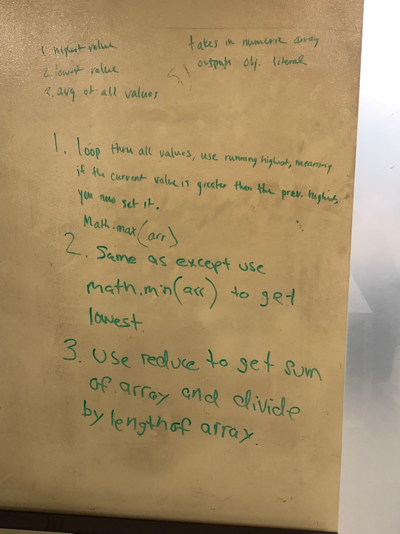 1. highest value
2. lowest value
3. avg of all values
takes in numeric array
outputs obj. literal
1. loop thru all values, use running highest, meaning
if the current value is greater than the prev. highest,
you now set it.
Math.max(arr)
2. Same as except use
math.min(arr) to get
lowest.
3. Use reduce to get sum
of array and divide
by length of array.